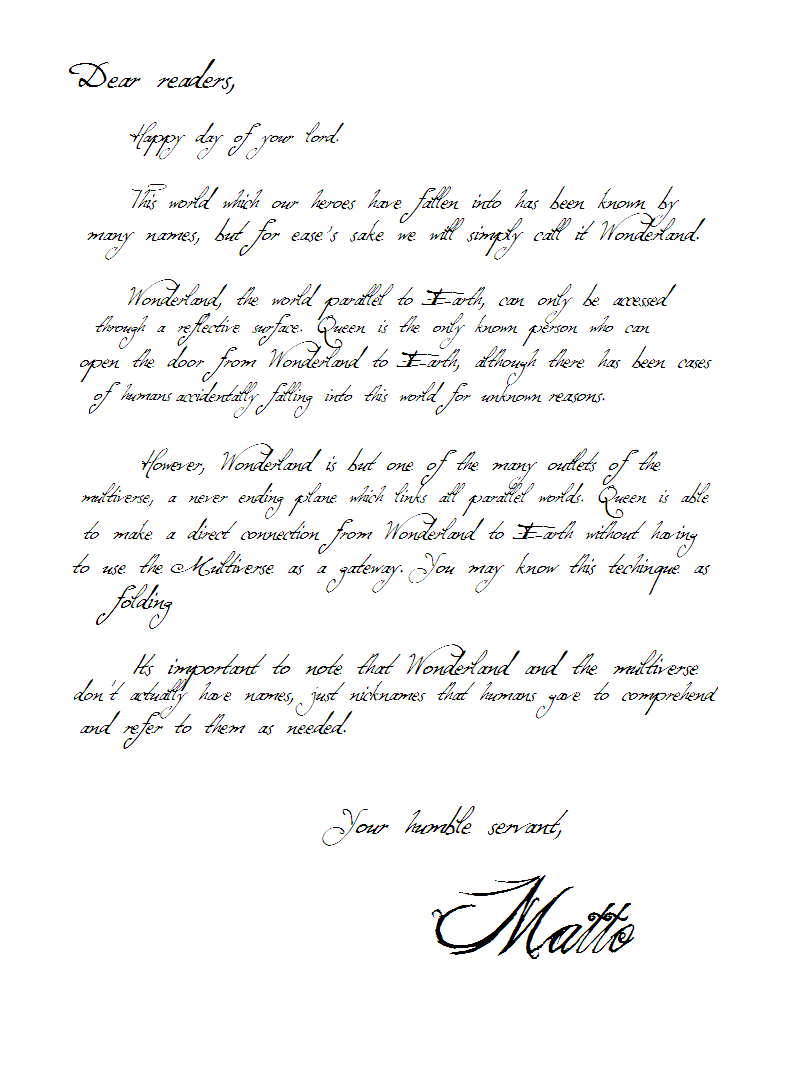 Dear readers,
Happy day of your lord.
This world which our heroes have fallen into has been known by
many names, but for ease's sake we will simply call it Wonderland.
Wonderland, the world parallel to Earth, can only be accessed
through a reflective surface. Queen is the only known person who can
open the door from Wonderland to Earth, although there has been cases
of humans accidentally falling into this world for unknown reasons.
However, Wonderland is but one of the many outlets of the
multiverse, a never ending plane which links all parallel worlds. Queen is able
to make a direct connection from Wonderland to Earth without having
to use the Multiverse as a gateway. You may know this techinque as
folding
Its important to note that Wonderland and the multiverse
don't actually have names, just nicknames that humans gave to comprehend
and refer to them as needed.
Your humble servant,
Matto